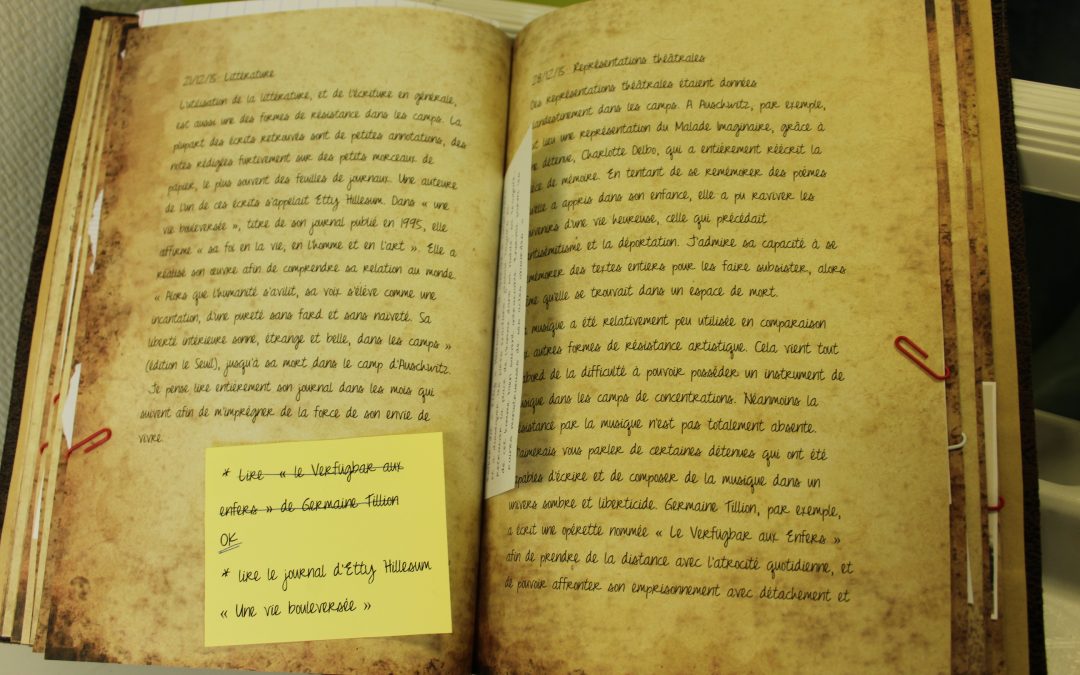 21/12/15: Littérature
L'utilisation de la littérature, et de l'écriture en générale,
est aussi une des formes de résistance dans les camps. La
plupart des écrits retrouvés sont de petites annotations, des
notes rédigées furtivement sur des petits morceaux de
papier, le plus souvent des feuilles de journaux. Une auteure
de l'un de ces écrits s'appelait Etty Hillesum. Dans « une
vie bouleversée », titre de son journal publié en 1995, elle
affirme « sa foi en la vie, en l'homme et en l'art ». Elle a
réalisé son œuvre afin de comprendre sa relation au monde.
« Alors que l'humanité s'avilit, sa voix s'élève comme une
incantation, d'une pureté sans fard et sans naïveté. Sa
liberté intérieure sonne, étrange et belle, dans les camps »
(édition le Seuil), jusqu'à sa mort dans le camp d'Auschwitz.
Je pense lire entièrement son journal dans les mois qui
suivent afin de m'imprégner de la force de son envie de
vivre.
* Lire « le Verfügbar aux
enfers » de Germaine Tillion
OK
* lire le journal d'Etty Hillesum
« Une vie bouleversée »
28/12/15: Représentations théâtrales
Des représentations théâtrales étaient données
clandestinement dans les camps. A Auschwitz, par exemple,
lieu une représentation du Malade Imaginaire, grâce à
détenue, Charlotte Delbo, qui a entièrement réécrit la
de mémoire. En tentant de se remémorer des poèmes
a appris dans son enfance, elle a pu raviver les
d'une vie heureuse, celle qui précédait
et la déportation. J'admire sa capacité à se
des textes entiers pour les faire subsister, alors
qu'elle se trouvait dans un espace de mort.
musique a été relativement peu utilisée en comparaison
autres formes de résistance artistique. Cela vient tout
de la difficulté à pouvoir posséder un instrument de
dans les camps de concentrations. Néanmoins la
par la musique n'est pas totalement absente.
vous parler de certaines détenues qui ont été
d'écrire et de composer de la musique dans un
univers sombre et liberticide. Germaine Tillion, par exemple,
a écrit une opérette nommée « Le Verfügbar aux Enfers »
afin de prendre de la distance avec l'atrocité quotidienne, et
de pouvoir affronter son emprisonnement avec détachement et